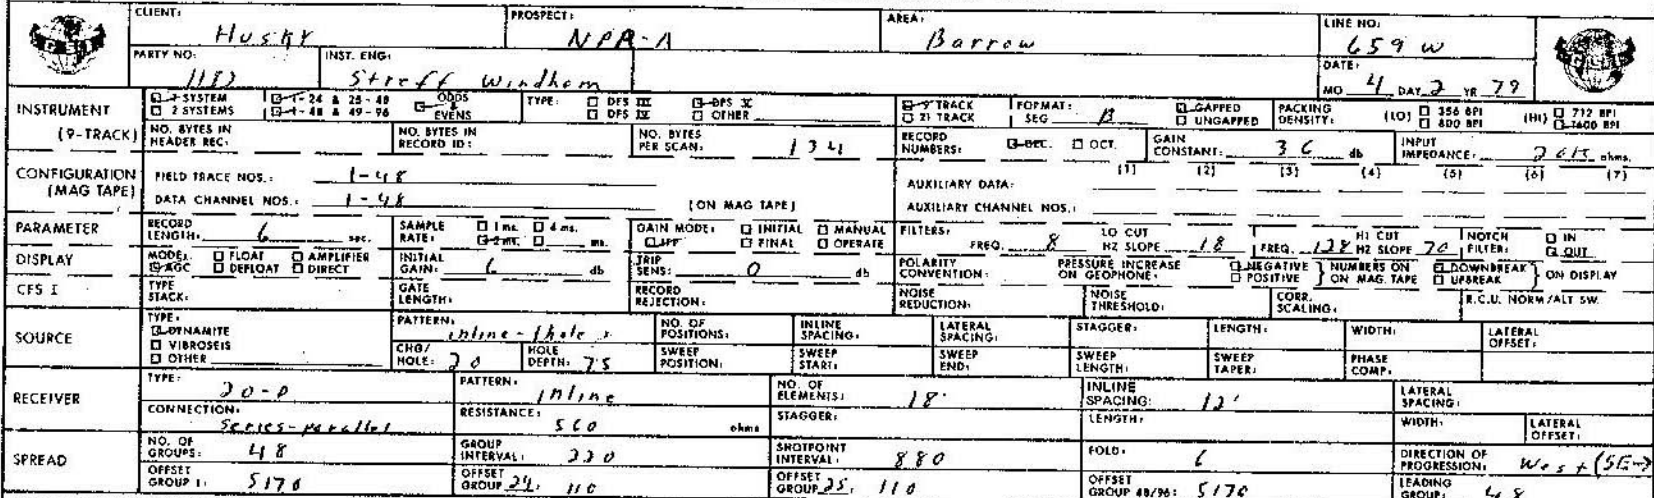 CLIENT: Husky PROSPECT: NPR-A AREA: Barrow LINE NO: 659 W
PARTY NO: INST. ENG: Streff Windham DATE: MO 4 DAY 2 YR 79
GSI GSI
INSTRUMENT (9-TRACK)
9 SYSTEM 1-24 & 25-48 ODDS TYPE: DFS III DFS V 9 TRACK FORMAT: GAPPED PACKING (LO) 356 BPI (HI) 712 BPI
2 SYSTEMS 1-48 & 49-96 EVENS DFS IV OTHER 21 TRACK SEG B UNGAPPED DENSITY: 800 BPI 1600 BPI
NO. BYTES IN HEADER REC: NO. BYTES IN RECORD ID: NO. BYTES PER SCAN: 134 RECORD NUMBERS: DEC. OCT. GAIN CONSTANT: 36 db INPUT IMPEDANCE: 20K ohms.
CONFIGURATION (MAG TAPE)
FIELD TRACE NOS.: 1-48 AUXILIARY DATA: (1) (2) (3) (4) (5) (6) (7)
DATA CHANNEL NOS.: 1-48 (ON MAG TAPE) AUXILIARY CHANNEL NOS.:
PARAMETER RECORD LENGTH: 6 sec. SAMPLE RATE: 1 ms. 4 ms. 2 ms. ms. GAIN MODE: INITIAL MANUAL IFP FINAL OPERATE FILTERS: FREQ. 8 LO CUT HZ SLOPE 18 FREQ. 128 HI CUT HZ SLOPE 70 NOTCH FILTER: IN OUT
DISPLAY MODE: FLOAT AMPLIFIER AGC DEFLOAT DIRECT INITIAL GAIN: 6 db TRIP SENS: 0 db POLARITY CONVENTION: PRESSURE INCREASE ON GEOPHONE: NEGATIVE POSITIVE NUMBERS ON ON MAG. TAPE DOWNBREAK UPBREAK ON DISPLAY
CFS I TYPE STACK: GATE LENGTH: RECORD REJECTION: NOISE REDUCTION: NOISE THRESHOLD: CORR. SCALING: R.C.U. NORM/ALT SW.
SOURCE TYPE: DYNAMITE VIBROSEIS OTHER
PATTERN: inline-1hole NO. OF POSITIONS: INLINE SPACING: LATERAL SPACING: STAGGER: LENGTH: WIDTH: LATERAL OFFSET:
CHG/HOLE: 20 HOLE DEPTH: 75 SWEEP POSITION: SWEEP START: SWEEP END: SWEEP LENGTH: SWEEP TAPER: PHASE COMP.
RECEIVER TYPE: 20-D PATTERN: inline NO. OF ELEMENTS: 18 INLINE SPACING: 12' LATERAL SPACING:
CONNECTION: Series-parallel RESISTANCE: 560 ohms STAGGER: LENGTH: WIDTH: LATERAL OFFSET:
SPREAD NO. OF GROUPS: 48 GROUP INTERVAL: 220 SHOTPOINT INTERVAL: 880 FOLD: 6 DIRECTION OF PROGRESSION: West (SE→
OFFSET GROUP 1: 5170 OFFSET GROUP 24: 110 OFFSET GROUP 25: 110 OFFSET GROUP 48/96: 5170 LEADING GROUP: 48